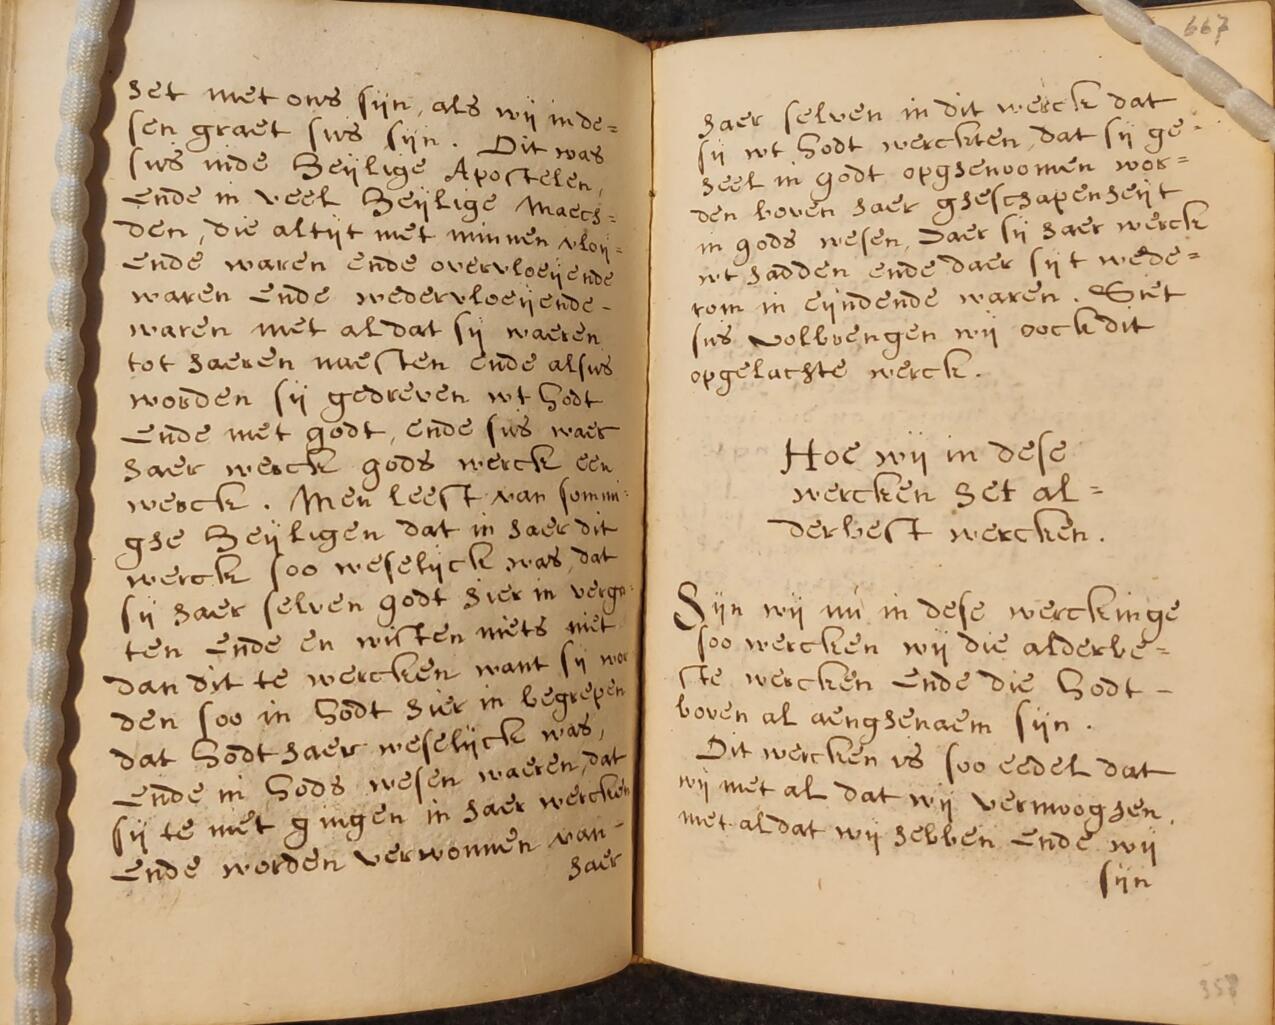 het met ons sijn, als wij in de=
sen graet sus sijn. Dit was
sus inde heijlige Apostelen,
Ende in veel heijlige Maech=
den, die altijt met minnen vloij=
Ende waren ende overvloeijende
waren Ende wedervloeijende-
waren met al dat sij waeren
tot haeren naesten ende alsus
worden sij gedreven wt Godt
Ende met godt, ende sus waer
haer werck gods werck een
werck. Men leest van sommi=
ghe heijligen dat in haer dit
werck soo weselijck was, dat
sij haer selven godt hier in verga=
ten Ende en wisten niets niet
dan dit te wercken want sij wor
den soo in Godt hier in begrepen
dat Godt haer weselijck was,
Ende in Gods wesen waeren, dat
sij te niet gingen in haer wercken
Ende worden verwonnen van-
haer
667
haer selven in dit werck dat
sij wt Godt werckten, dat sij ge=
heel in godt opghenoomen wor=
den boven haer gheschapenheijt
in gods wesen, Daer sij haer werck
wt hadden ende daer sijt wede=
rom in eijndende waren. Siet
sus volbrengen wij oock dit
opgelachte werck.
Hoe wij in dese
wercken het al=
derbest wercken.
Sijn wij nú in dese werckinge
soo wercken wij die alderbe=
ste wercken Ende die Godt-
boven al aenghenaem sijn.
Dit wercken is soo eedel dat
wij met al dat wij vermooghen,
met al dat wij hebben Ende wij
sijn
358